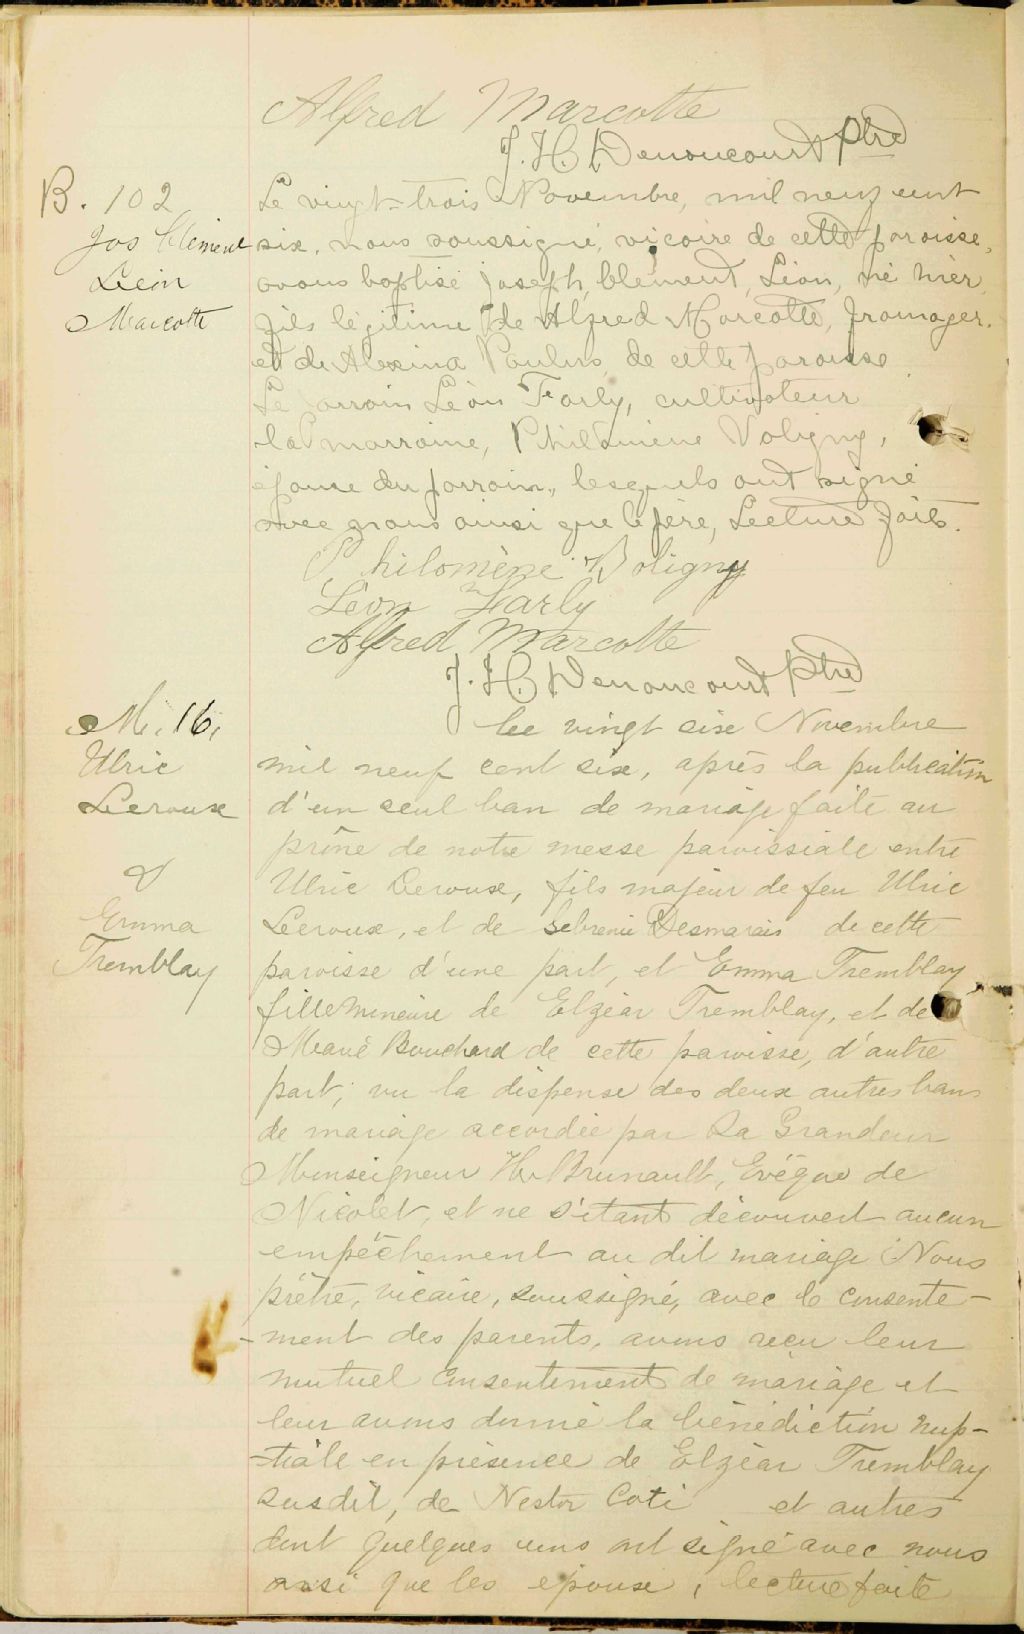 Alfred Marcotte
J. H. Denoncourt Ptre
B. 102
Jos Clément
Léon
Marcotte
Le vingt-trois Novembre, mil neuf cent
six, nous soussigné, vicaire de cette paroisse,
avons baptisé Joseph, Clément, Léon, né hier,
fils légitime de Alfred Marcotte, fromager,
et de Alexina Paulus, de cette paroisse.
Le Parrain Léon Farly, cultivateur
la marraine, Philomène Voligny,
épouse du parrain, lesquels ont signé
avec nous ainsi que le père, Lecture faite.
Philomène Voligny
Léon Farly
Alfred Marcotte
J. H. Denoncourt Ptre
M. 16,
Ulric
Leroux
&
Emma
Tremblay
Le vingt six Novembre
mil neuf cent six, après la publication
d'un seul ban de mariage faite au
prône de notre messe paroissiale entre
Ulric Leroux, fils majeur de feu Ulric
Leroux, et de Desmarais de cette
paroisse d'une part, et Emma Tremblay
fille mineure de Elzéar Tremblay, et de
Marie Bouchard de cette paroisse, d'autre
part; vu la dispense des deux autres bans
de mariage accordée par Sa Grandeur
Monseigneur H. Brunault, Evêque de
Nicolet, et ne s'étant découvert aucun
empêchement au dit mariage Nous
prêtre, vicaire, soussigné, avec le consente-
-ment des parents, avons reçu leur
mutuel consentement de mariage et
leur avons donné la bénédiction nup-
-tiale en présence de Elzéar Tremblay
susdit, de Nestor Coté et autres
dont quelques uns ont signé avec nous
ainsi que les épouse, lecture faite